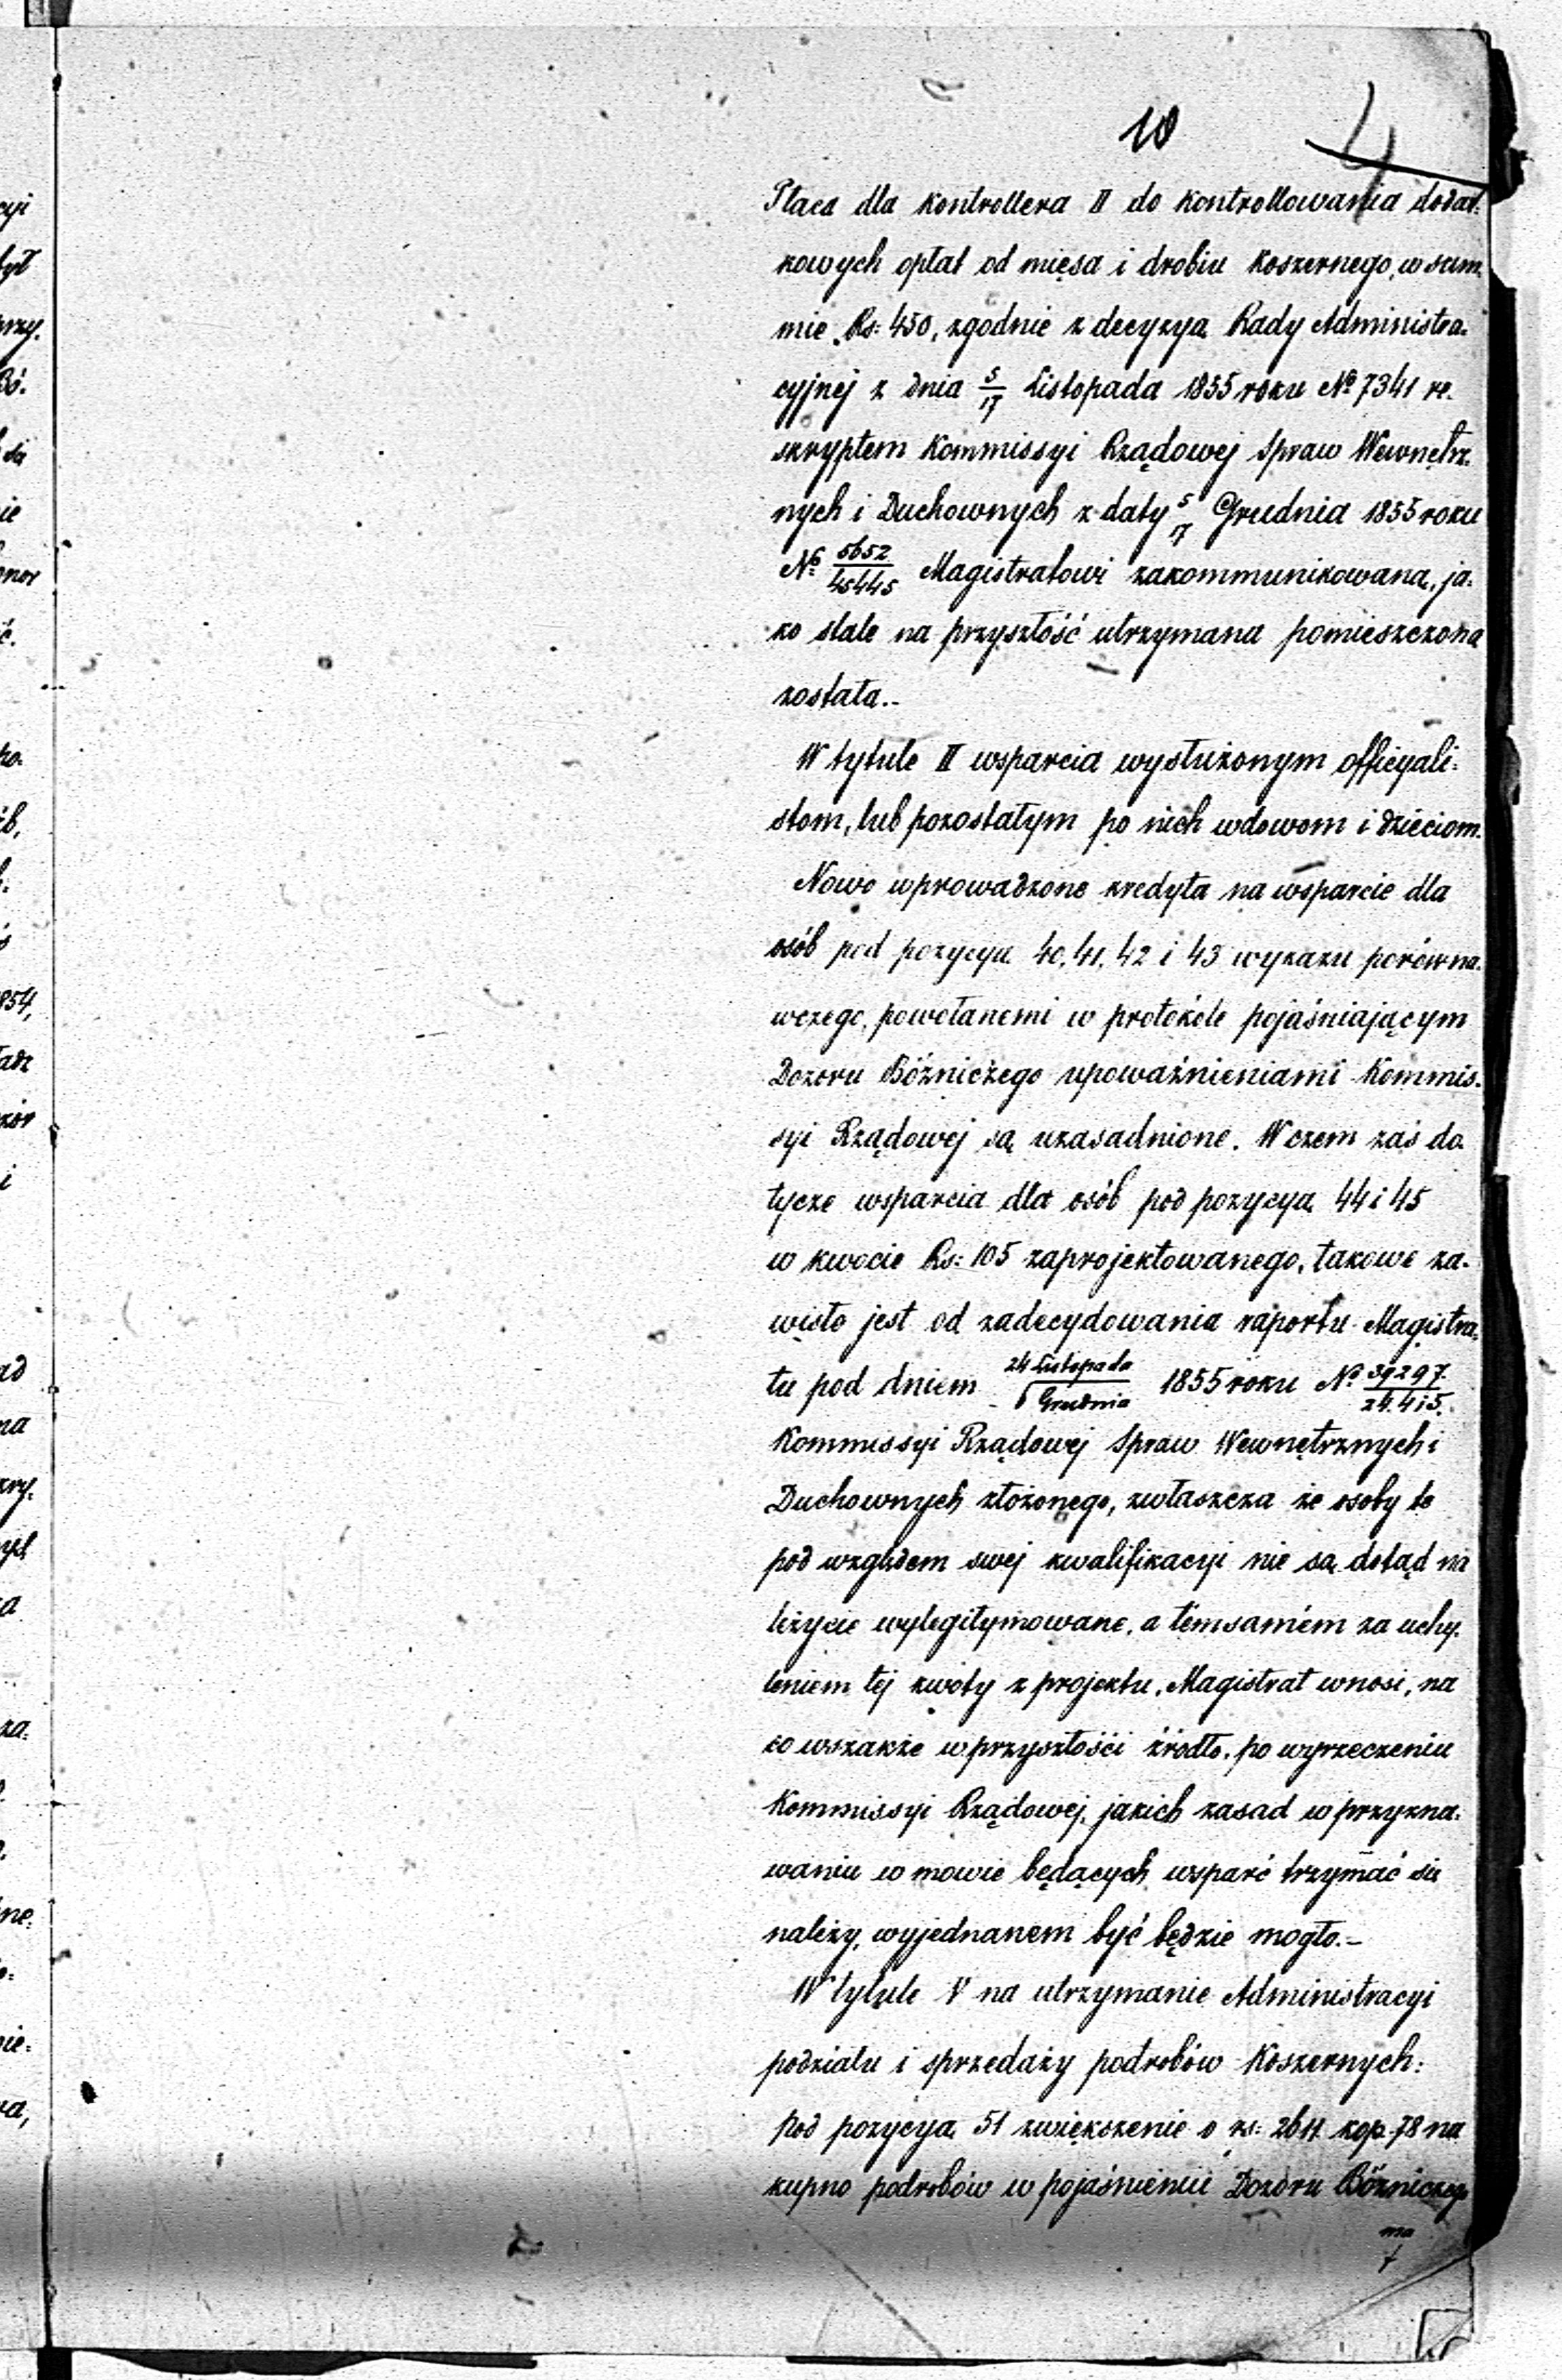 10
4
Płaca dla Kontrollera II do Kontrollowania dodat:
kowych opłat od mięsa i drobiu Koszernego, w sum:
mie Rs: 450, zgodnie z decyzyą Rady Administra:
cyjnej z dnia 5/17 Listopada 1855 roku № 7341 re:
skryptem Kommissyi Rządowej Spraw Wewnętrz:
nych i Duchownych z daty 5/17 Grudnia 1855 roku
№ 5652/45445 Magistratowi zakommunikowaną, ja:
ko stale na przyszłość utrzymana pomieszczoną
została.-
W tytule II wsparcia wysłużonym officyali:
stom, lub pozostałym po nich wdowom i dzieciom.
Nowo wprowadzone kredyta na wsparcie dla
osób pod pozycyą 40, 41, 42 i 43 wykazu porówna:
wczego, powołanemi w protokóle pojaśniającym
Dozoru Bóżniczego upoważnieniami Kommis:
syi Rządowej są uzasadnione. W czem zaś do
tycze wsparcia dla osób pod pozycyą 44 i 45
w kwocie Rs: 105 zaprojektowanego, takowe za:
wisło jest od zadecydowania raportu Magistra:
tu pod dniem 24 Listopada/6 Grudnia 1855 roku № 39297/24.415.
Kommissyi Rządowej Spraw Wewnętrznych i
Duchownych złożonego, zwłaszcza że osoby te
pod względem swej kwalifikacyi nie są dotąd na
leżycie wylegitymowane, a témsamém za uchy:
leniem tej kwoty z projektu, Magistrat wnosi, na
co wszakże w przyszłości źródło, po wyrzeczeniu
Kommissyi Rządowej, jakich zasad w przyzna:
waniu w mowie będących wsparć trzymać się
należy, wyjednanem być będzie mogło.-
W tytule V na utrzymanie Administracyi
podziału i sprzedaży podrobów Koszernych:
pod pozycyą 51 zwiększenie o rs: 2611 kop. 78 na
kupno podrobów w pojaśnieniu Dozoru Bóżniczego
ma